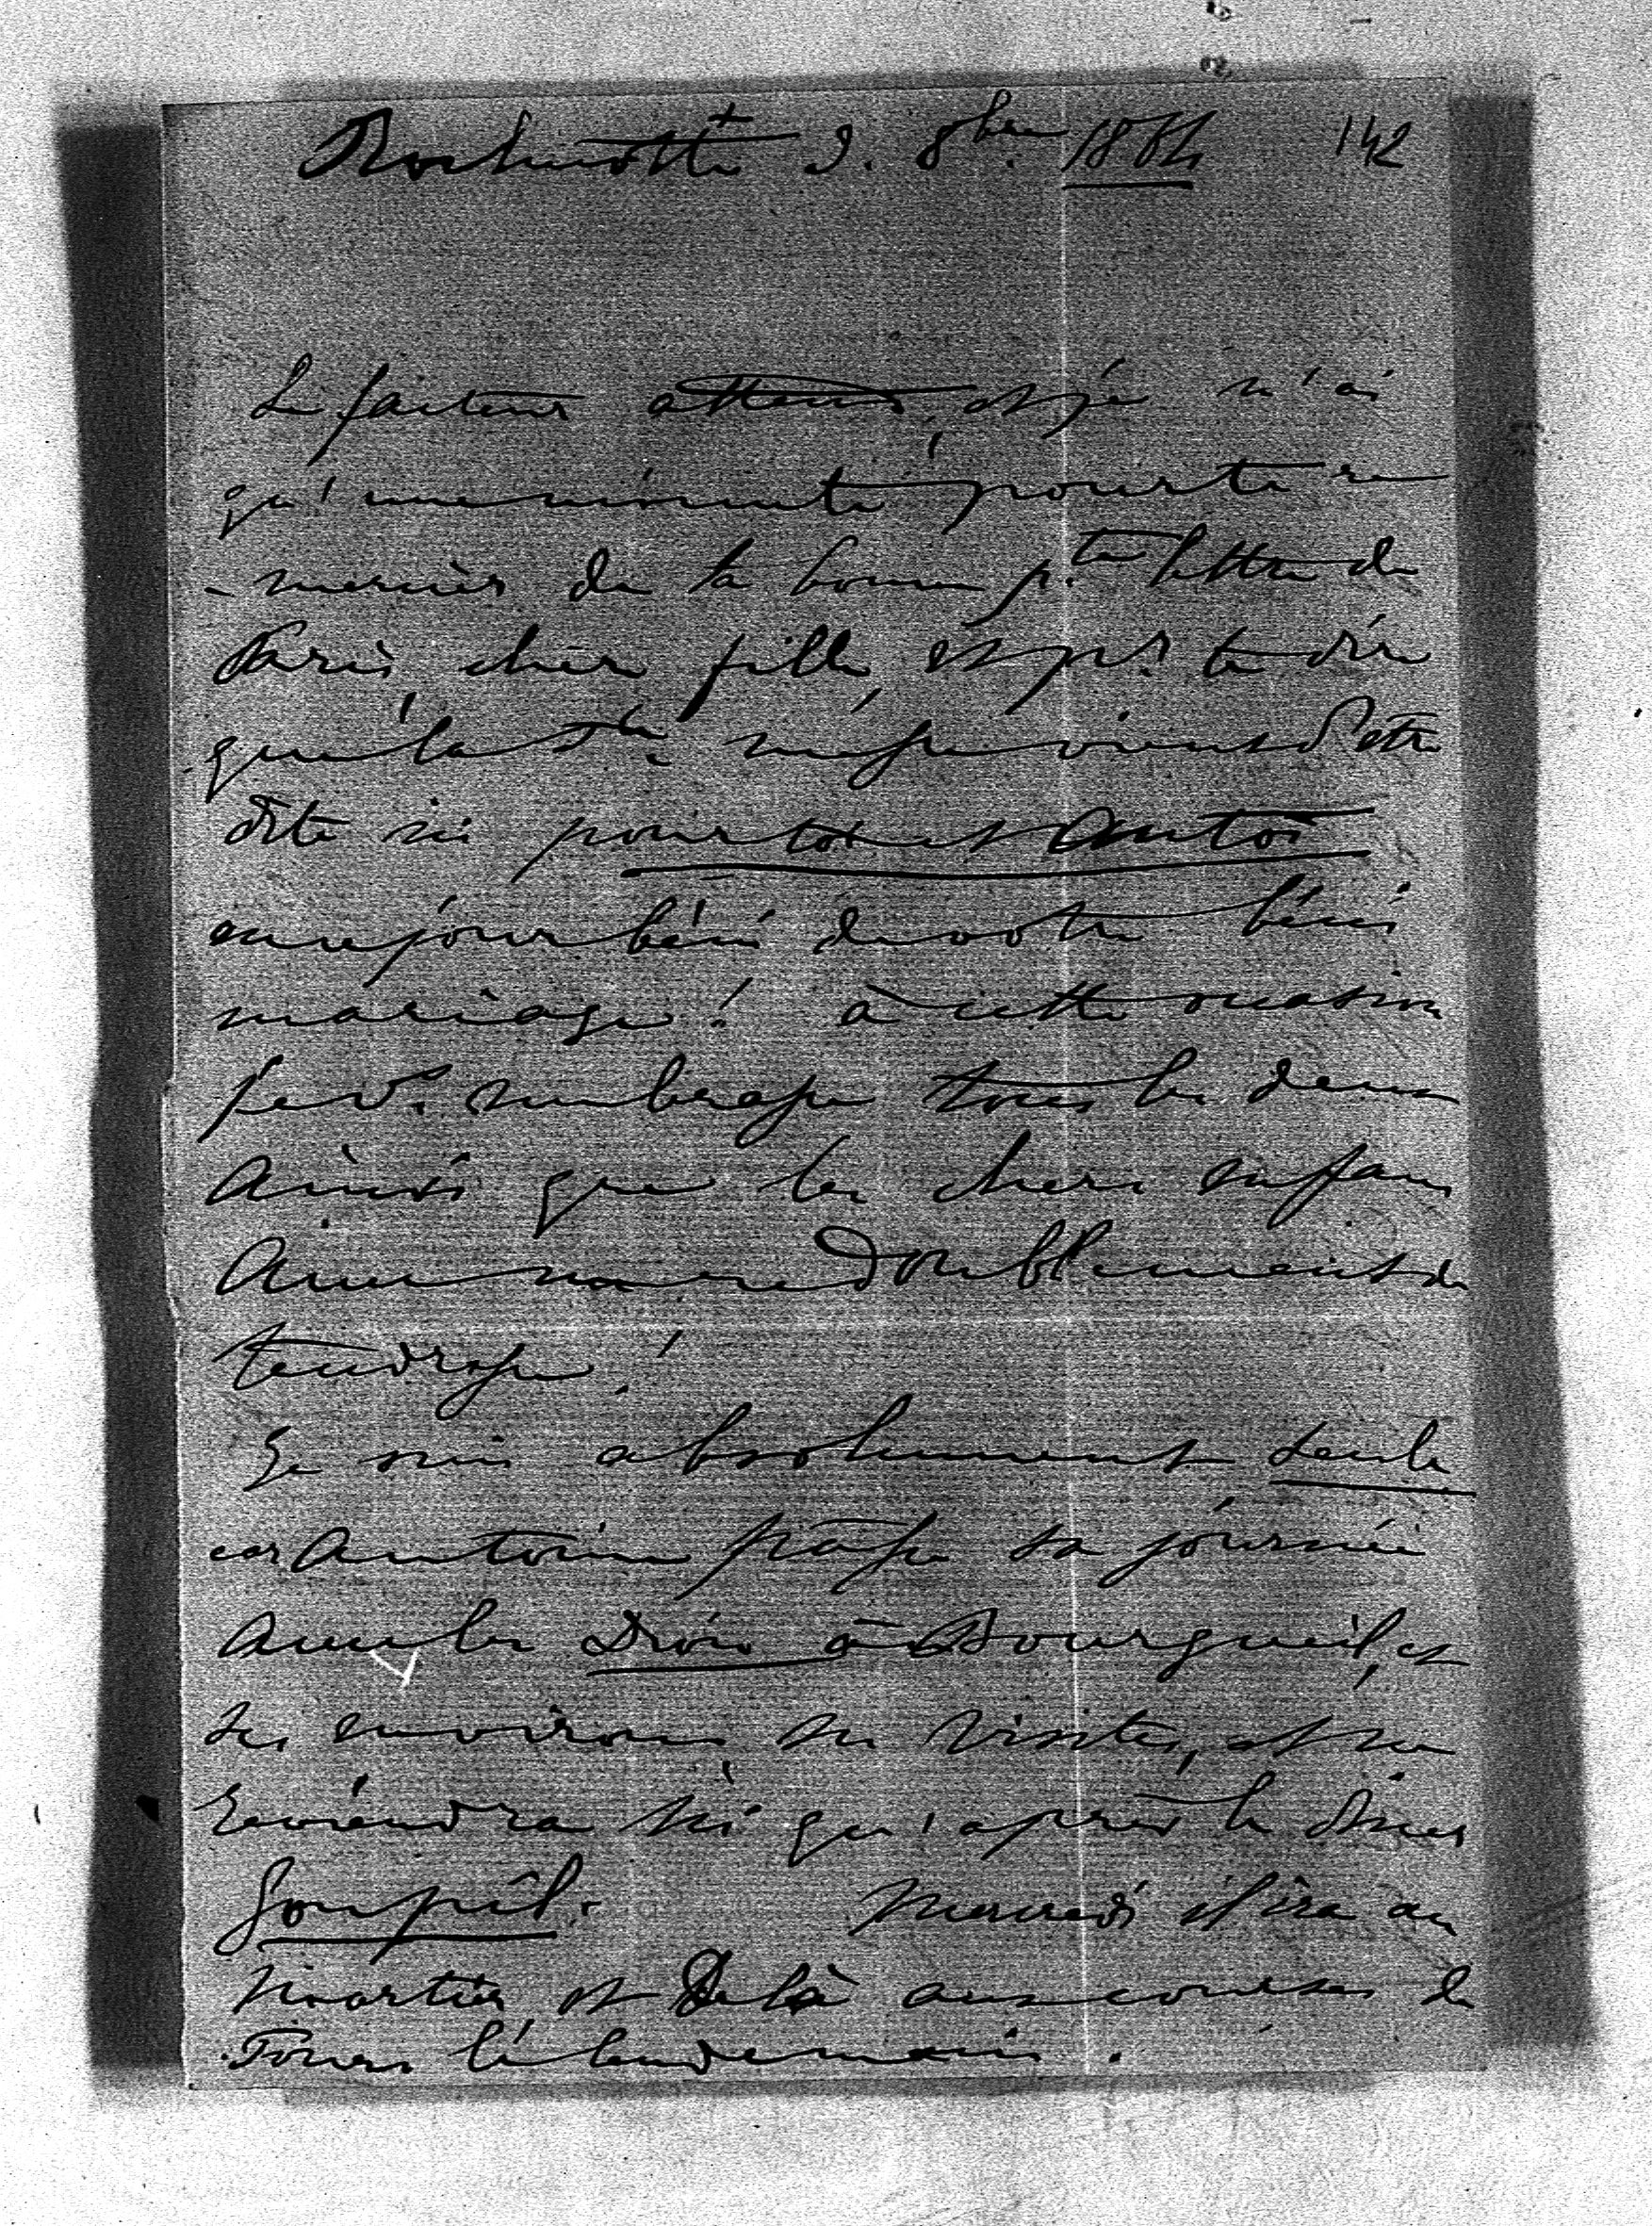 Rochecotte 3. 8bre 1864 142
Le facteur attend, et je n'ai
qu'une minute pour te re
-mercier de ta bonne pte lettre de
Paris, chère fille, et pr te dire
que la Ste messe vient d'être
dite ici pour toi et Antoi
en ce jour béni de votre béni
mariage! à cette occasion
je vs. rembrasse tous les deux
ainsi que les chers enfans
avec un redoublement de
tendresse!
Je suis absolument seule
car Antoine passe sa journée
avec les à Bourgueil, et
ses environs en visites, et ne
reviendra ici qu'après le dîner
Goupil. Mercredi il ira au
Mortier et de là aux courses de
Tours le lendemain.